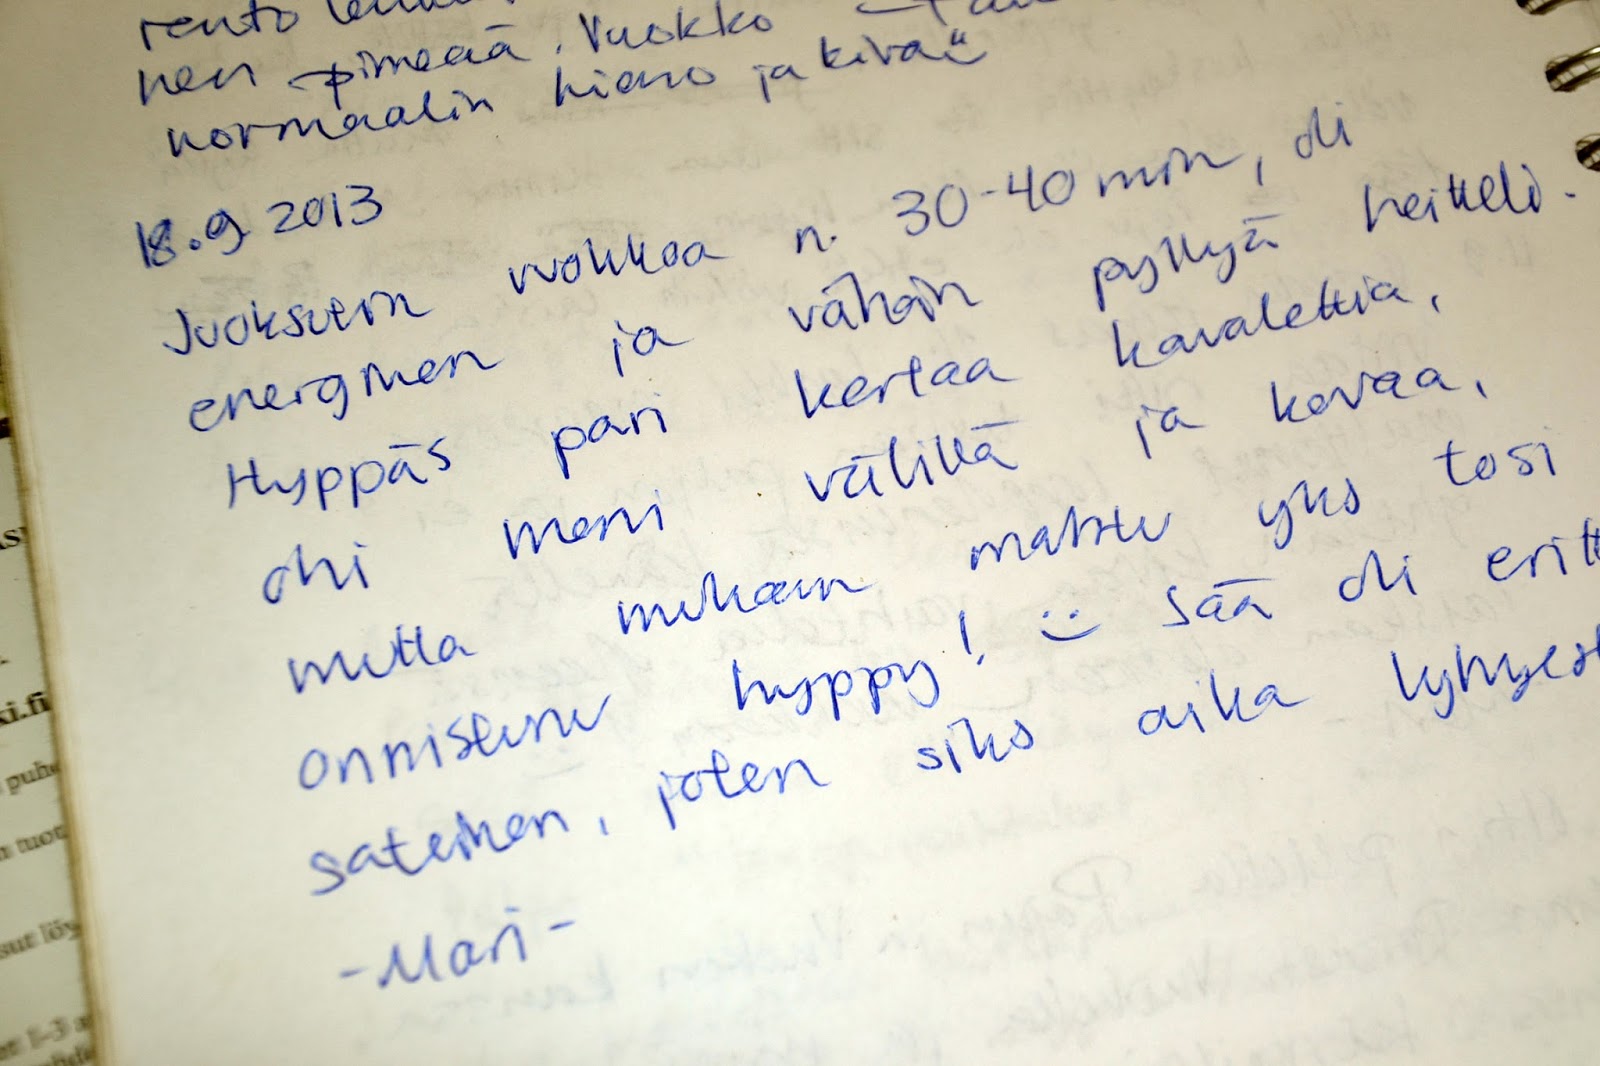 rento
nen pimeää. Vuokko
normaalin hieno ja kiva
18.9 2013
Juoksutin vuokkoa n. 30-40 min, oli
energinen ja vähän pyllyä heitteli.
Hyppäs pari kertaa kavalettia,
ohi meni välillä ja kovaa,
mutta mukaan mahtu yks tosi
onnistunu hyppy! :) Sää oli
sateinen, joten siks aika
-Mari-
ki.fi
puhe
n tuot
sut löy
1-3